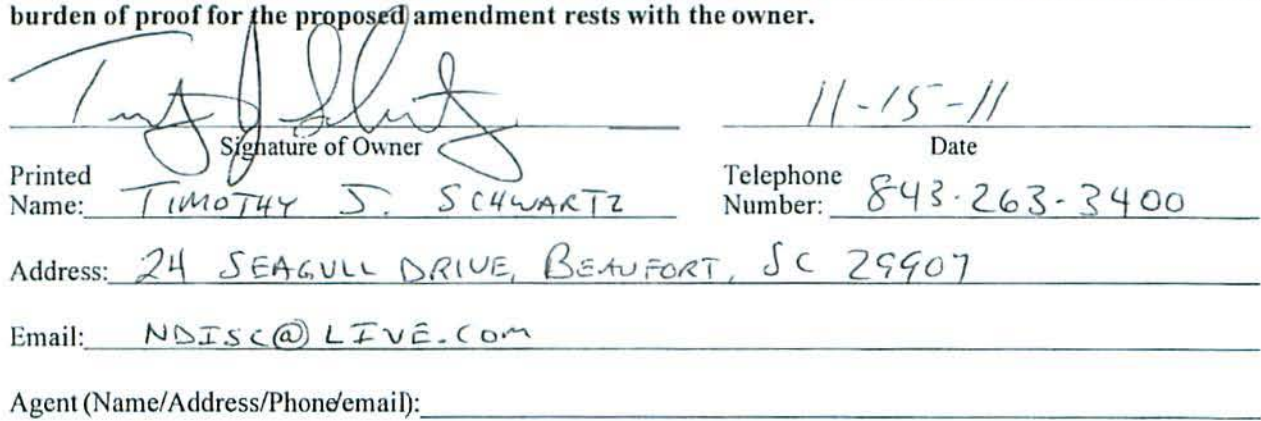 burden of proof for the proposed amendment rests with the owner.
11-15-11
Signature of Owner Date
Printed Name: TIMOTHY J. SCHWARTZ Telephone Number: 843-263-3400
Address: 24 SEAGULL DRIVE, BEAUFORT, SC 29907
Email: NDISC@LIVE.COM
Agent (Name/Address/Phone/email):